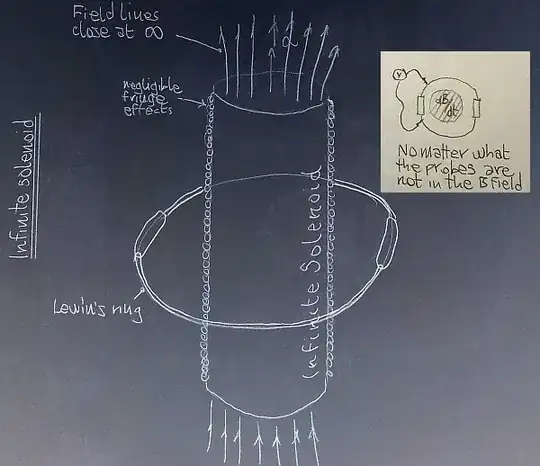 Field lines
close at ∞
α
negligible
fringe
effects
Infinite solenoid
Infinite Solenoid
Lewin's ring
V
dB
dt
No matter what
the probes are
not in the B field